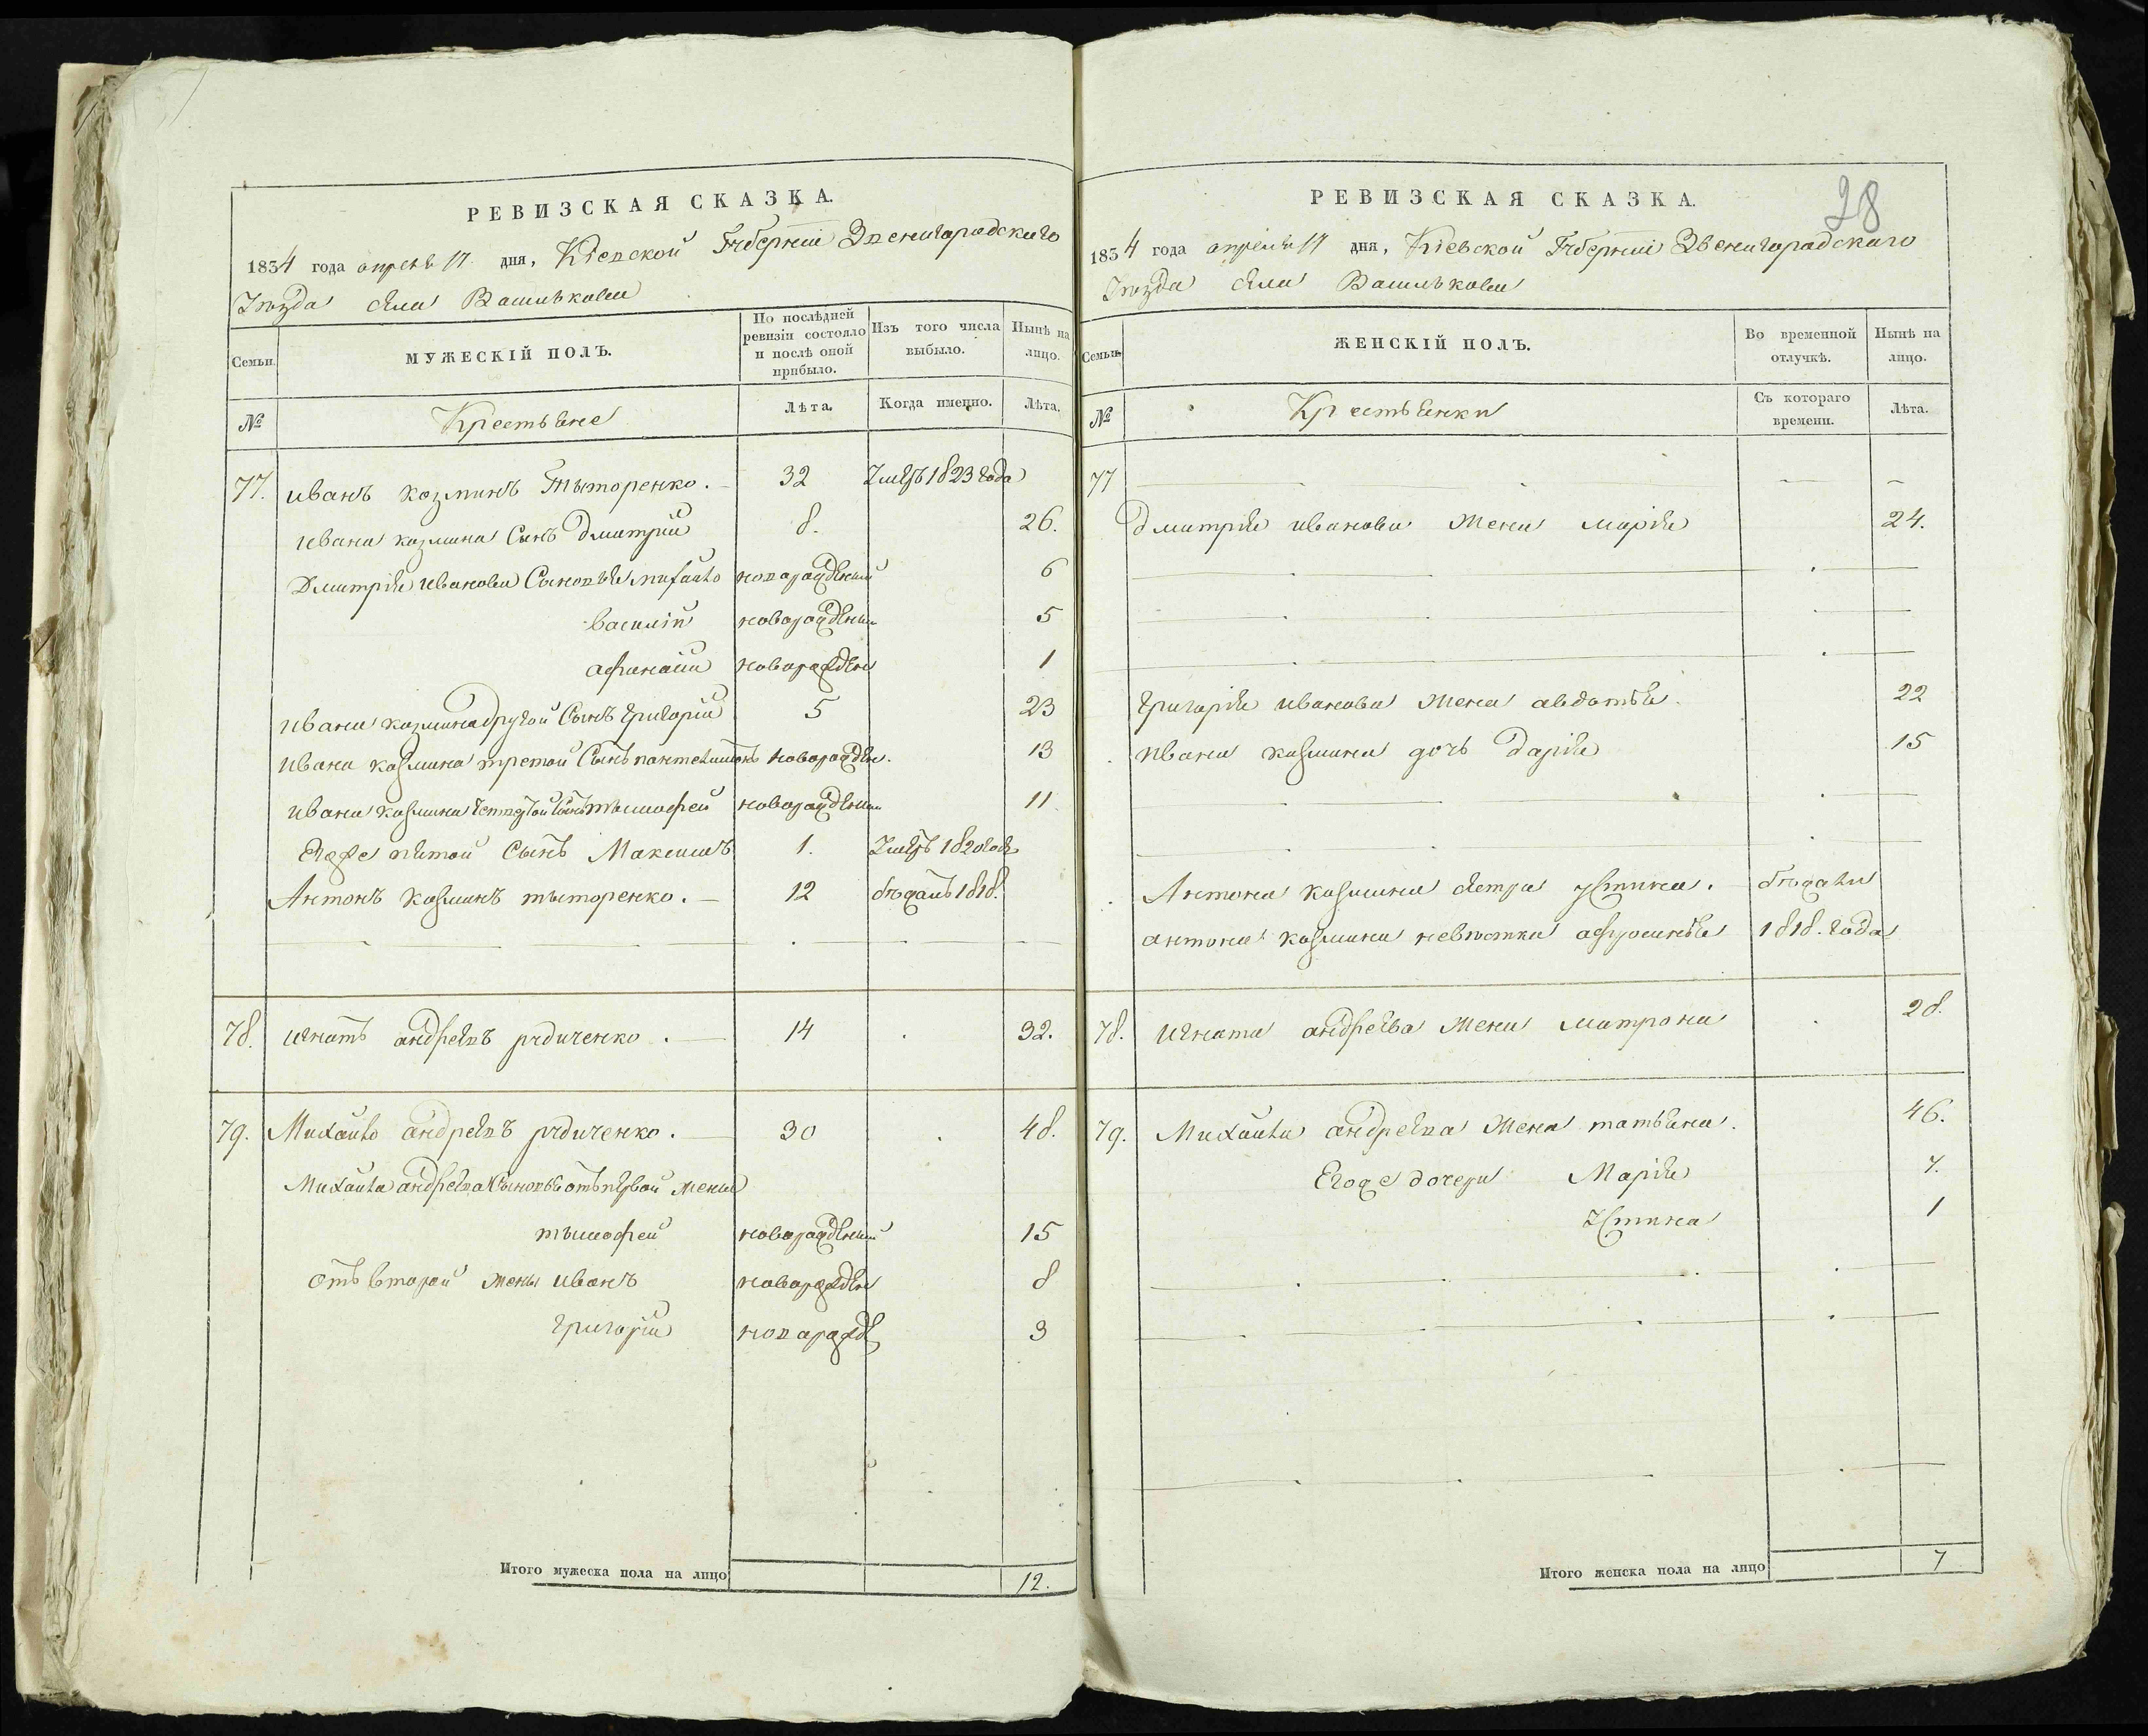 РЕВИЗСКАЯ СКАЗКА.
1834 года апреля 17 дня, Кіевской Губерніи Звенигородского
Уезда села Василькова
Семьи. МУЖЕСКІЙ ПОЛЪ. По послѣдней ревизіи состояло и послѣ оной прибыло. Изъ того числа выбыло. Нынѣ на лицо.
№ Крестьяне Лѣта. Когда имянно. Лѣта.
77. иванъ козминъ Тыторенко. 32 умеръ 1823 года
ивана козмина Сынъ Дмитрий 8. 26.
Дмитрия иванова Сыновья михайло новорожденый 6
василій новорожденый 5
афанаси новорожден 1
ивана козмина другой Сынъ григорий 5 23
ивана козмина третой Сынъ пантелимонъ новорожден. 13
ивана козмина четвертой Сынъ тымофей новорожденый 11
Егоже пятой Сынъ Максимъ 1. умеръ 1820 года
Антонъ козминъ тыторенко. 12 бежалъ 1818.
78. игнатъ андреевъ рудиченко. 14 32.
79. Михайло андреевъ рудиченко. 30 48.
Михайла андреева Сыновья отъ первой жены
тымофей новорожденый 15
отъ второй жены иванъ новорожден 8
григорій новорожд 3
Итого мужеска пола на лицо 12.
28
РЕВИЗСКАЯ СКАЗКА.
1834 года апреля 17 дня, Кіевской Губерніи Звенигородскаго
Уезда села Васильковы
Семьи. ЖЕНСКІЙ ПОЛЪ. Во временной отлучкѣ. Нынѣ на лицо.
№ Крестьянки Съ котораго времени. Лѣта.
77
Дмитрия иванова жена марія 24.
григорія иванова жена авдотья. 22
ивана козмина дочь дарія 15
Антона козмина сестра устина. бежали
антона козмина невестка афросинья 1818. года
78. игната андреева жена матрона 28.
79. Михайла андреева жена татьяна. 46.
Егоже дочери Марія 7.
Устина 1
Итого женска пола на лицо 7